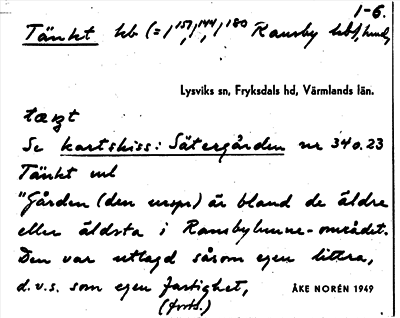 1-6.
Tänkt hb (=1/157, 1/144, 1/180 Ransby hbf, hmd,
Lysviks sn, Fryksdals hd, Värmlands län.
tæŋt
Se kartskiss: Sätergården nr 34 o. 23
Tänkt ml
"Gården (den urspr) är bland de äldre
eller äldsta i Ransbyhmne-området.
Den var utlagd såsom egen littra,
d.v.s. som egen fastighet,
(forts.)
ÅKE NORÉN 1949